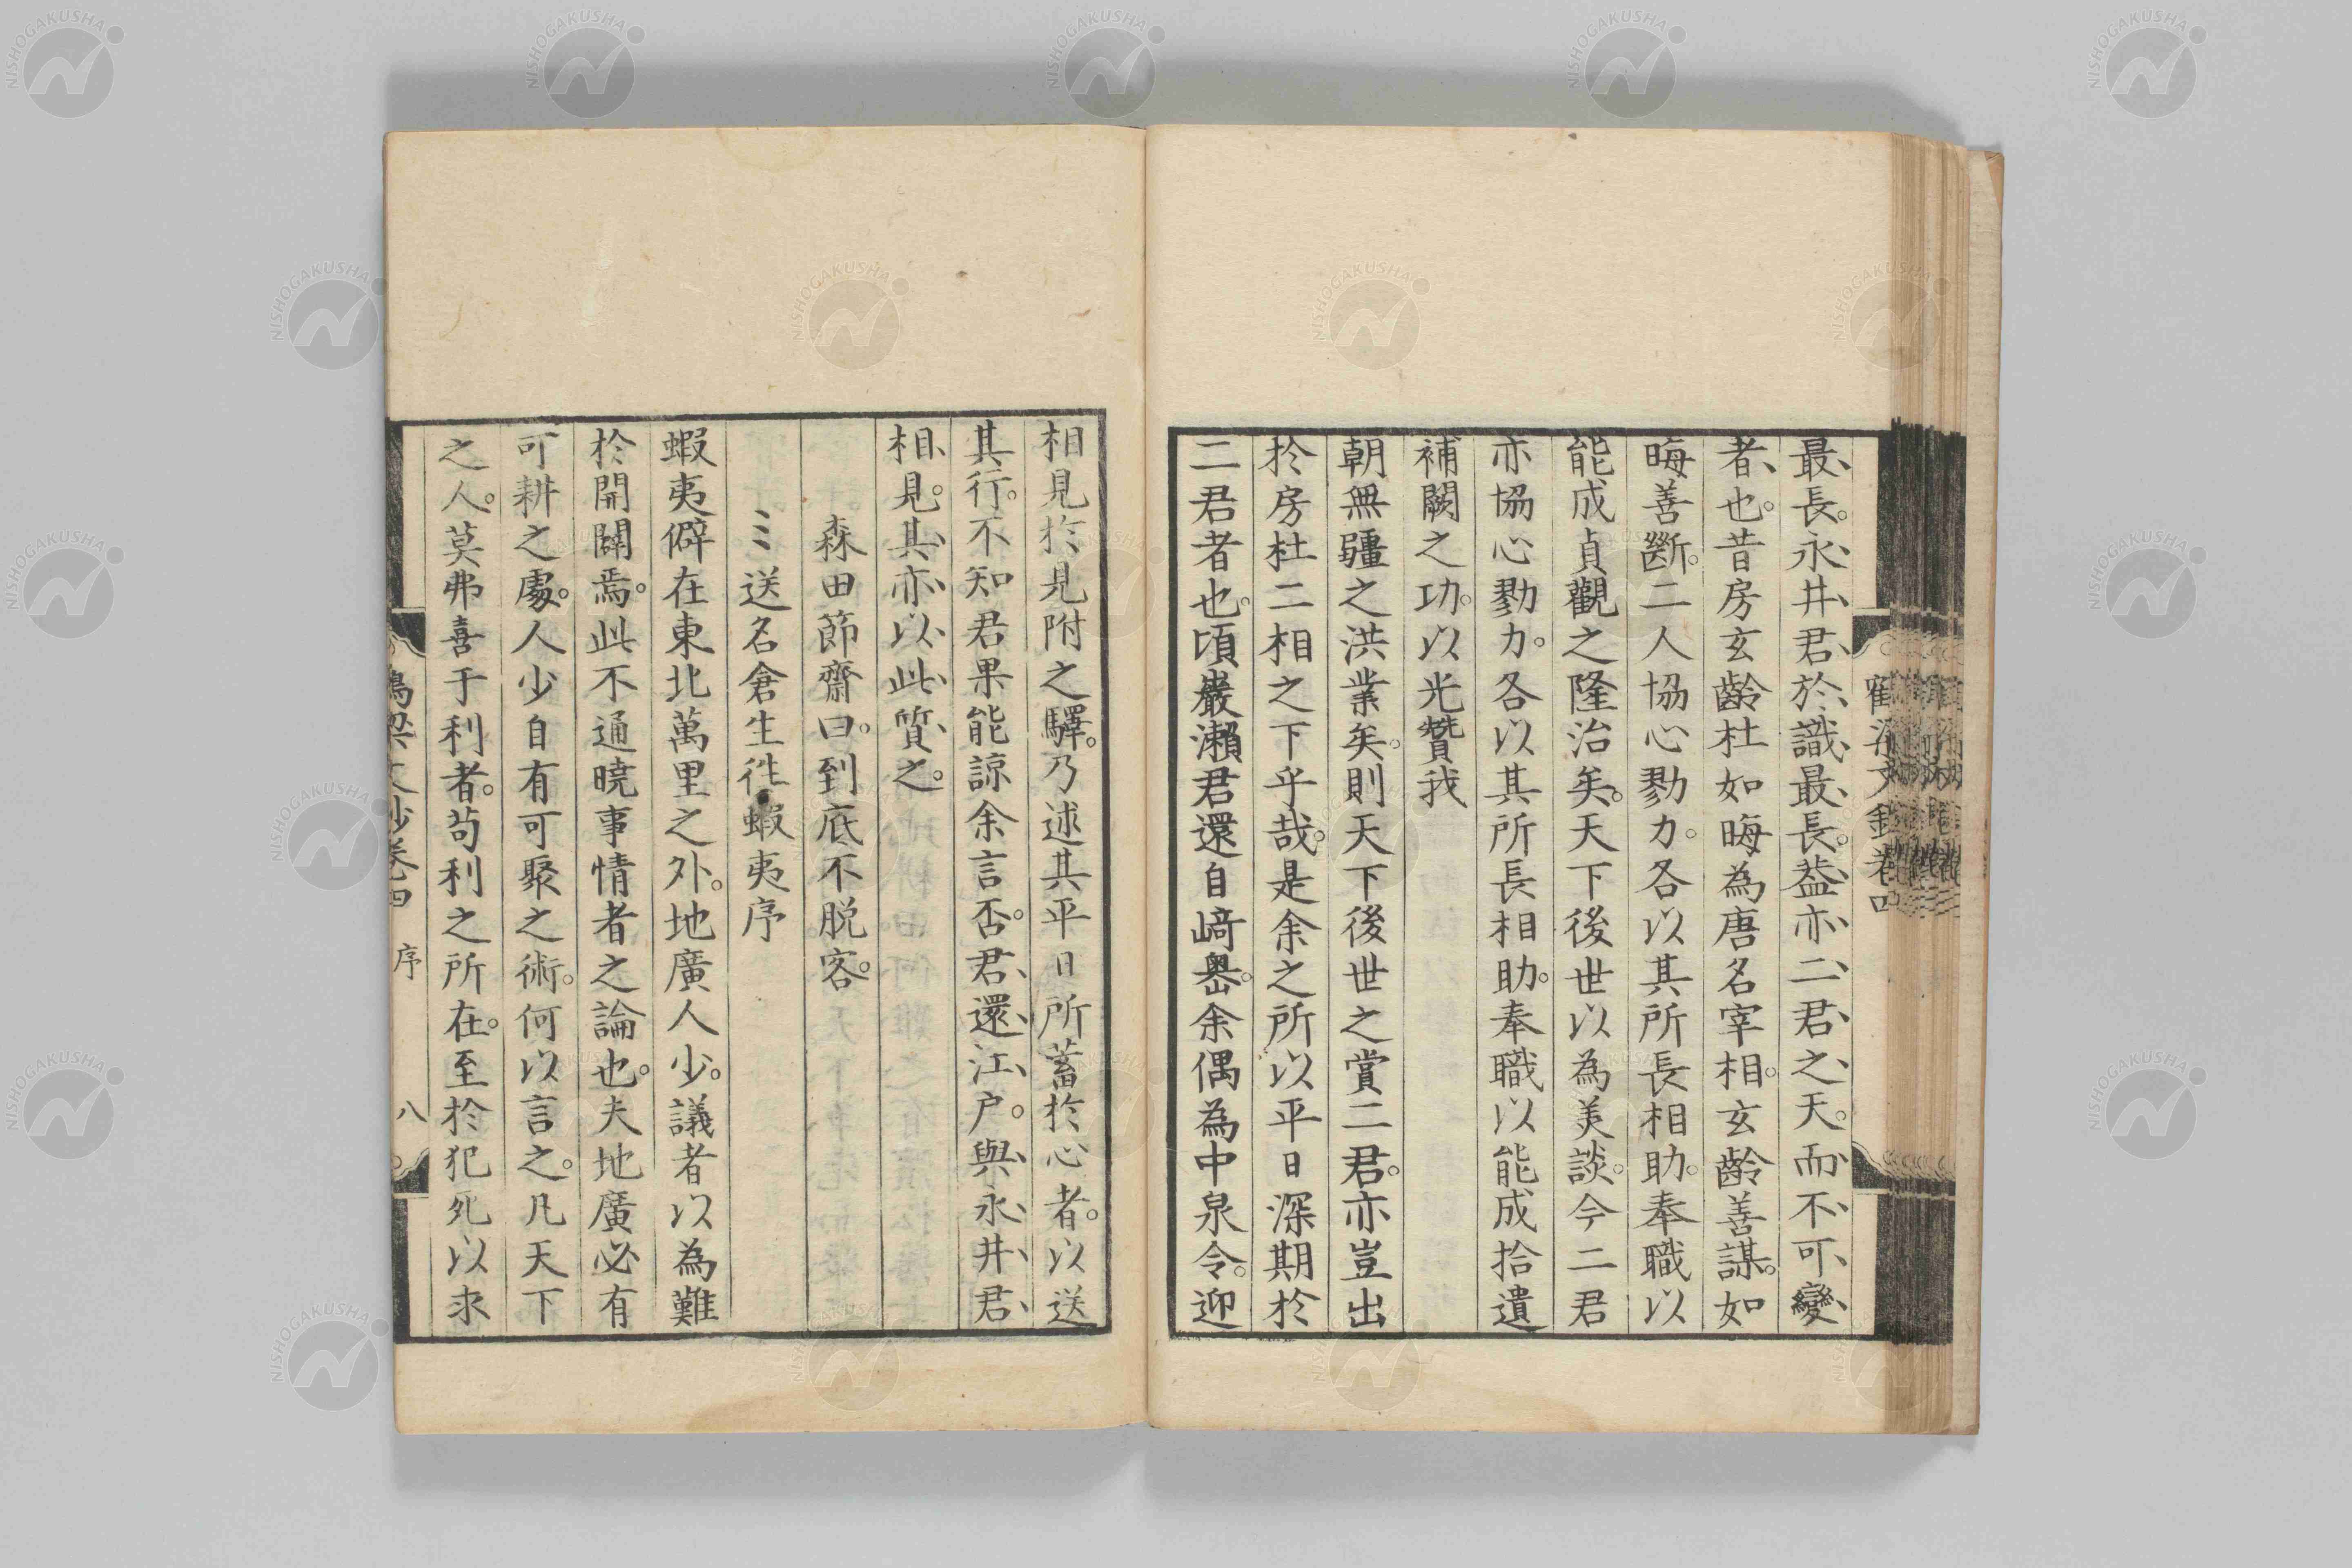 最長。永井君於識最長。益亦二君之天。而不可變
者也。昔房玄齡杜如晦為唐名宰相。玄齡善謀。如
晦善斷。二人協心勠力。各以其所長相助。奉職以
能成貞觀之隆治矣。天下後世以為美談。今二君
亦協心勠力。各以其所長相助。奉職以能成拾遺
補闕之功。以光贊我
朝無疆之洪業矣。則天下後世之賞二君。亦豈出
於房杜二相之下乎哉。是余之所以平日深期於
二君者也。頃巖瀨君還自﨑嶴。余偶為中泉令。迎
相見於見附之驛。乃述其平日所蓄於心者。以送
其行。不知君果能諒余言否。君還江戶。與永井君
相見。其亦以此質之。
森田節齋曰。到底不脫客。
送名倉生徃蝦夷序
蝦夷僻在東北萬里之外。地廣人少。議者以為難
於開闢焉。此不通曉事情者之論也。夫地廣必有
可耕之處。人少自有可聚之術。何以言之。凡天下
之人。莫弗喜于利者。苟利之所在。至於犯死以求
文鈔卷四 序 八
NISHOGAKUSHA